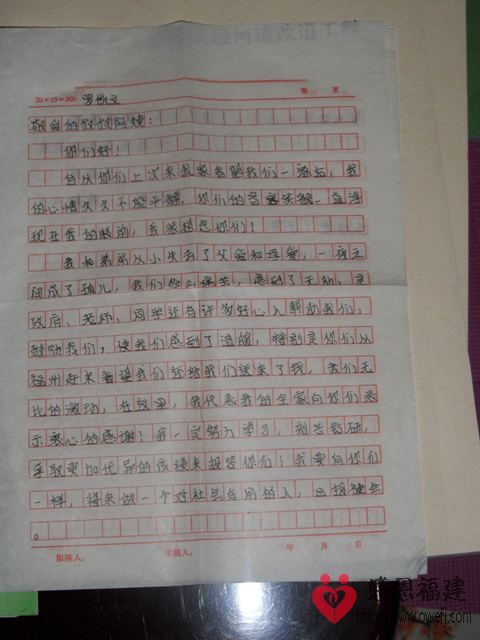 20×15=300
第 页
敬爱的叔叔阿姨:
你们好!
自从你们上次来我家看望我们一家后,我
的心情久久不能平静,你们的音容笑貌一直浮
现在我的眼前,我很想念你们!
我和弟弟从小失去了父爱和母爱,一夜之
间成了孤儿,我们 痛苦,感到了无助,是
政府、老师、同学还有许多好心人帮助我们,
鼓励我们,使我们感到了温暖,特别是你们从
福州赶来看望我们还给我们送来了钱,我们无
比的激动,在这里,我代表我的全家向你们表
示衷心的感谢!我一定努力学习,刻苦钻研,
采取更加优异的成绩来报答你们!我要向你们
一样,将来做一个对社会有用的人,回报社会
。
拟稿人: 审稿人: 年 月 日
感恩福建
http://www.owefj.com